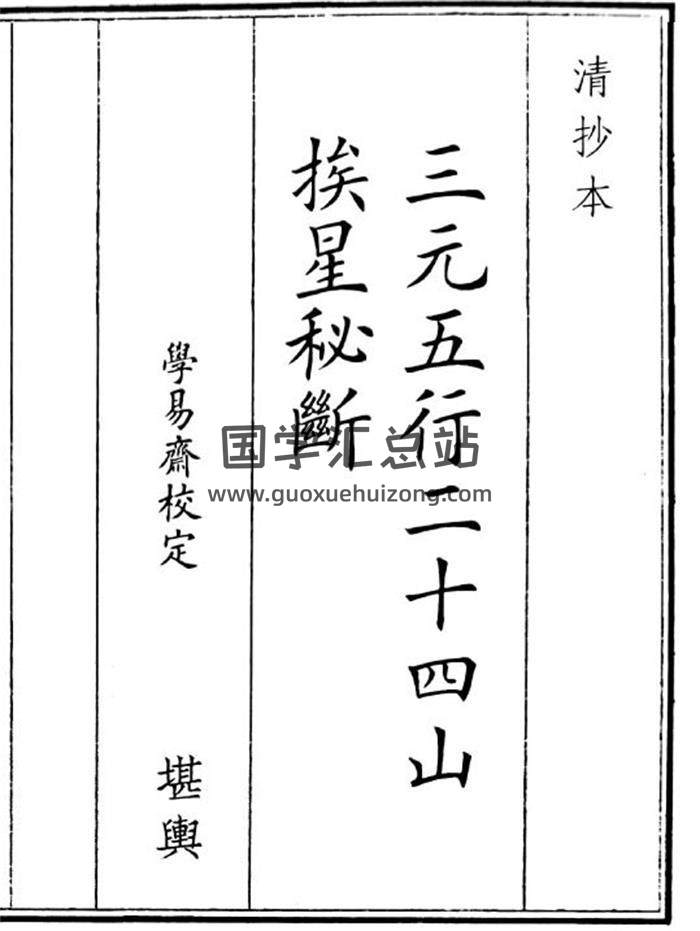 清抄本
三元五行二十四山
挨星秘斷
學易齋校定
堪輿
国学汇总站
www.guoxuehuizong.com